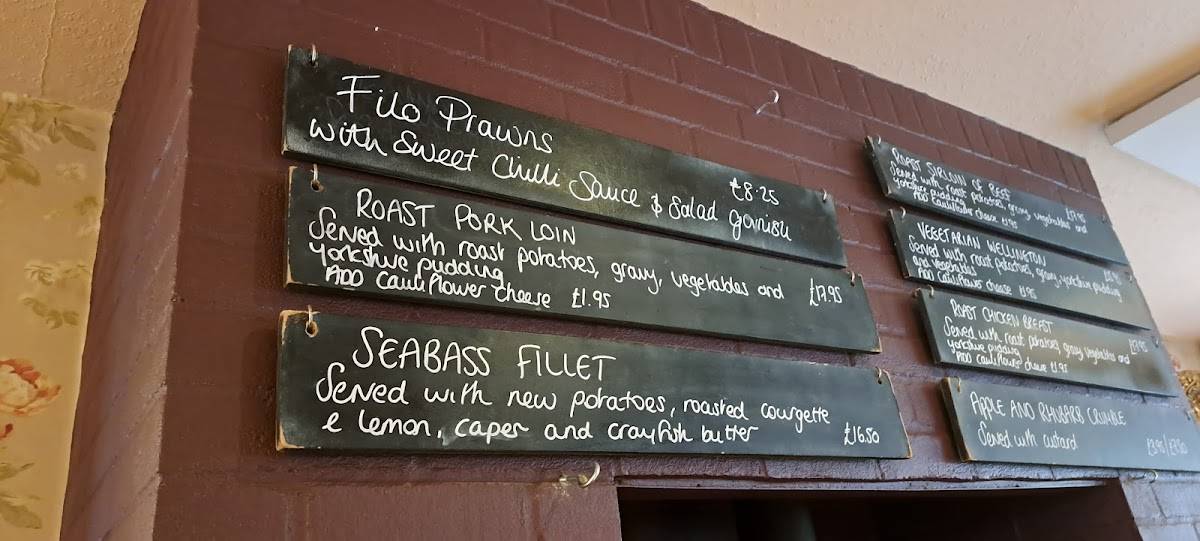 Filo Prawns
with Sweet Chilli Sauce & Salad garnish £8.25
ROAST PORK LOIN
Served with roast potatoes, gravy, vegetables and
Yorkshire pudding £17.95
ADD cauliflower cheese £1.95
SEABASS FILLET
Served with new potatoes, roasted courgette
& lemon, caper and crayfish butter £16.50
ROAST SIRLOIN OF BEEF
Served with roast potatoes, gravy, vegetables and
Yorkshire pudding
ADD Cauliflower cheese £1.95
VEGETARIAN WELLINGTON
Served with roast potatoes, gravy, yorkshire pudding
and vegetables
ADD cauliflower cheese £1.95
ROAST CHICKEN BREAST
Served with roast potatoes, gravy vegetables and
Yorkshire pudding
ADD cauliflower cheese £1.95
APPLE AND RHUBARB CRUMBLE
Served with custard